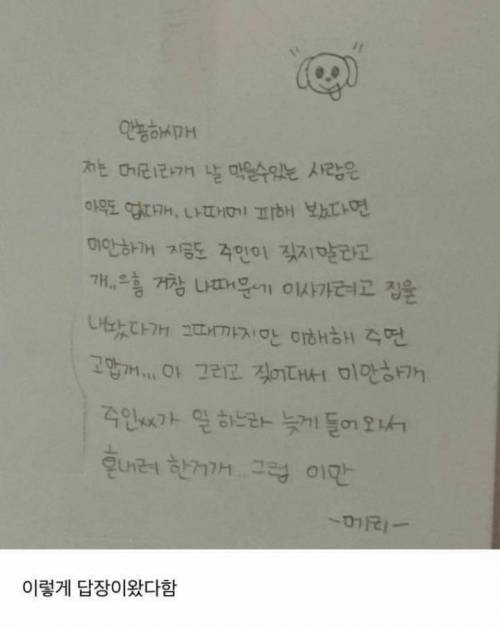 안뇽하시개
저는 메리라개 날 막을수있는 사람은
아무도 업다개, 나때메 피해 봤다면
미안하개 지금도 주인이 짖지말라고
개,,으흠 거참 나때문에 이사가려고 집을
내놨다개 그때까지만 이해해 주면
고맙개,,, 아 그리고 짖어대서 미안하개
주인xx가 일 하느라 늦게 들어와서
혼내려 한거개.. 그럼 이만
-메리-
이렇게 답장이왔다함